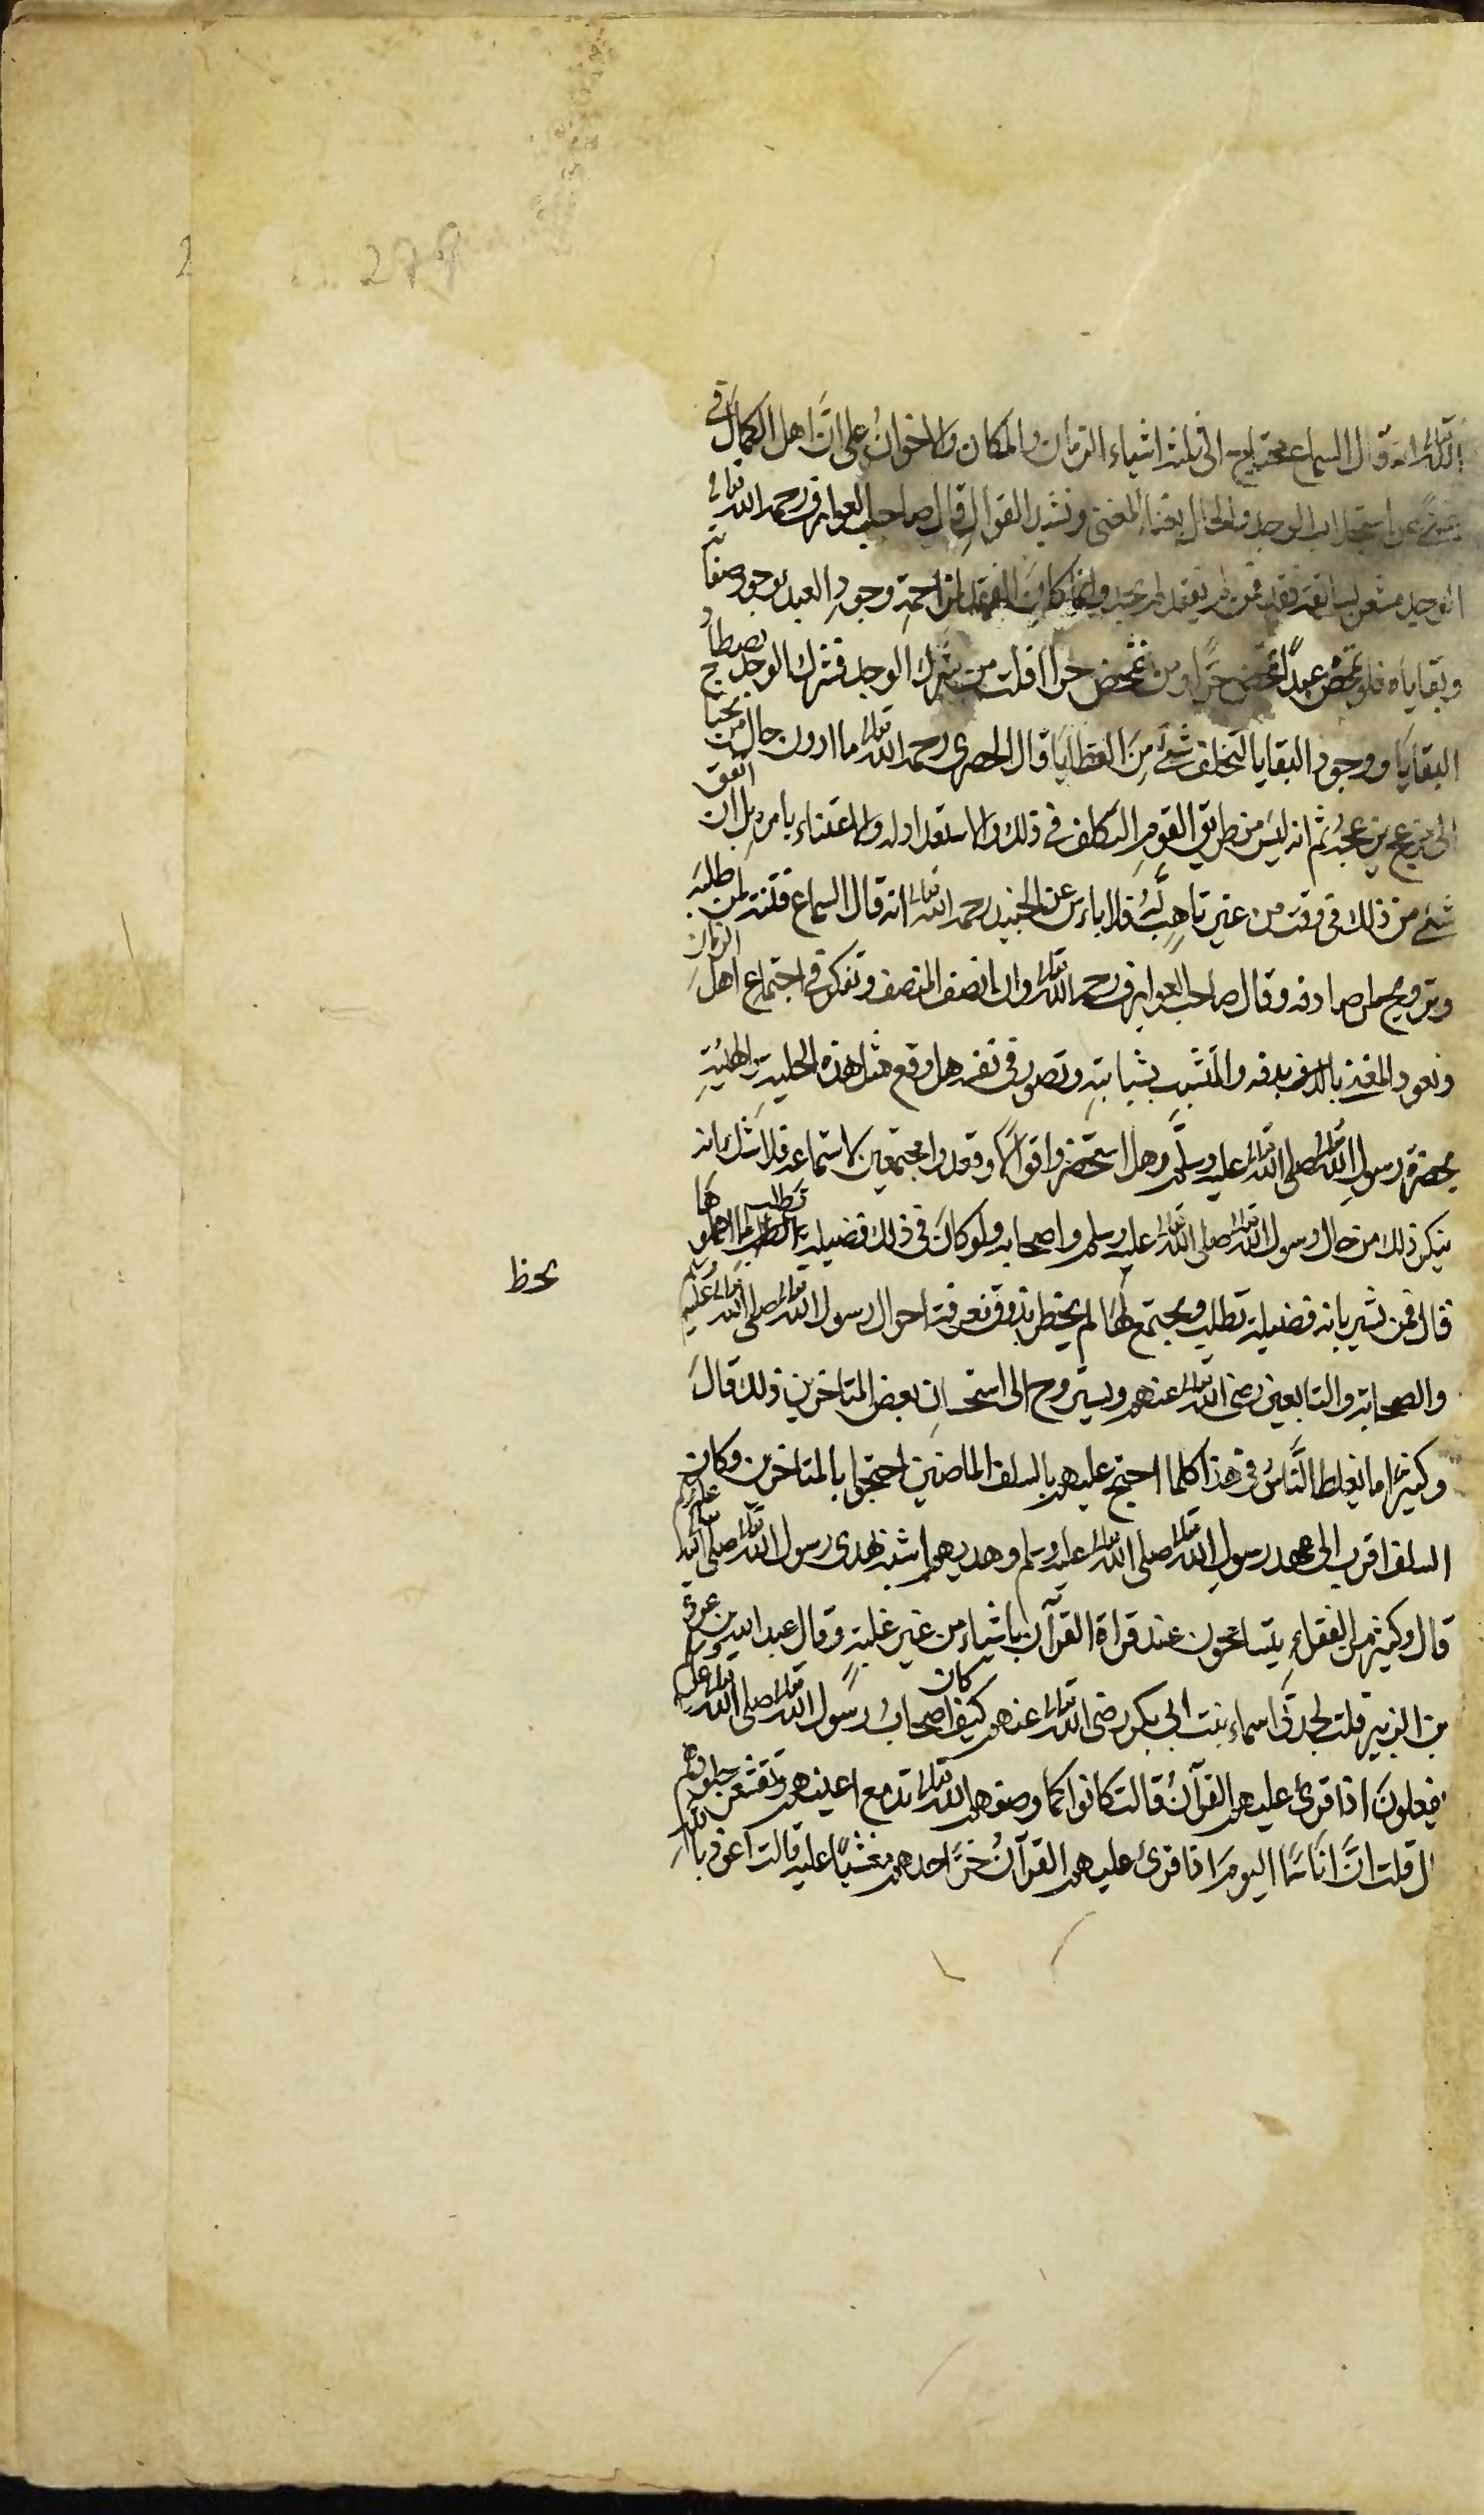 الله تعالى انه قال السماع محتاج الى ثلثة اشياء الزمان والمكان والاخوان على انَّ اهل الكمال في
عن استجلاب الوجد والحال بغناء المغنى ونشيد القوال قال صاحب العوارف رحمه الله تعالى
الوجد مشعر بسابقة فقد فمن لم يفقد لم يجد وانما كان الفقد لمزاحمة وجود العبد بوجود صفاته
وبقاياه فلو تمحض عبدًا لتمحض حرًّا ومن تمحض حرا افلت من شرك الوجد فشرك الوجد يصطاد
البقايا ووجود البقايا لتخلف شئ مِنَ العطايا قال الحصرى رحمه الله تعالى ما ادون حال من يحتاج
الى مزعج يزعجه ثم انه ليس من طريق القوم التكلف فى ذلك والاستعداد له والاعتناء بامره بل ان اتفق
شئ من ذلك فى وقت من غير تاهب له فلا باس عن الجنيد رحمه الله تعالى انه قال السماع فتنة لمن طلبه
وترويح لمن صادفه وقال صاحب العوارف رحمه الله تعالى وان انصف المنصف وتفكر فى اجتماع اهل الزمان
وقعود المغنى بالدف بدفه والمشبب بشبابته وتصور فى نفسه هل وقع مثل هذه الجلسة والهيئة
بحضرة رسول الله تعالى صلى الله تعالى عليه وسلم وهل استحضروا قوالًا وقعدوا مجتمعين لاستماعه فلا شك انه
ينكر ذلك من حال رسول الله تعالى صلى الله تعالى عليه وسلم واصحابه ولو كان فى ذلك فضيلة تطلب ما اهملوها
قال فمن يشير بانه فضيلة تطلب ويجتمع لها لم يحظ بذوق معرفة احوال رسول الله تعالى صلى الله تعالى عليه وسلم
يحظ
والصحابة والتابعين رضى الله تعالى عنهم ويستروح الى استحسان بعض المتاخرين ذلك قال
وكثيرًا ما يغلط النَّاسُ فى هذا كلما احتج عليهم بالسلف الماضين احتجوا بالمتاخرين وكان
السلف اقرب الى عهد رسولِ الله تعالى صلى الله تعالى عليه وسلم وهديهم اشبه بهدى رسول الله تعالى صلى الله تعالى عليه وسلم
قال وكثير من الفقراءِ يتسامحون عند قراة القرآن باشياء من غير غلبةٍ وقال عبد الله بن عروة
بن الزبير قلت لجدتى اسماء بنت ابى بكر رضى الله تعالى عنهم كيف كان اصحاب رسول الله تعالى صلى الله تعالى عليه وسلم
يفعلونَ اذا قرئ عليهم القرآنُ قالت كانوا كما وصفهم الله تعالى تدمع اعينهم وتقشعر جلودهم
ل قلت انَّ اناسًا اليومَ اذا قرئ عليهم القرآنُ خرَّ احدهم مغشيًا عليه قالت اعوذ بالله